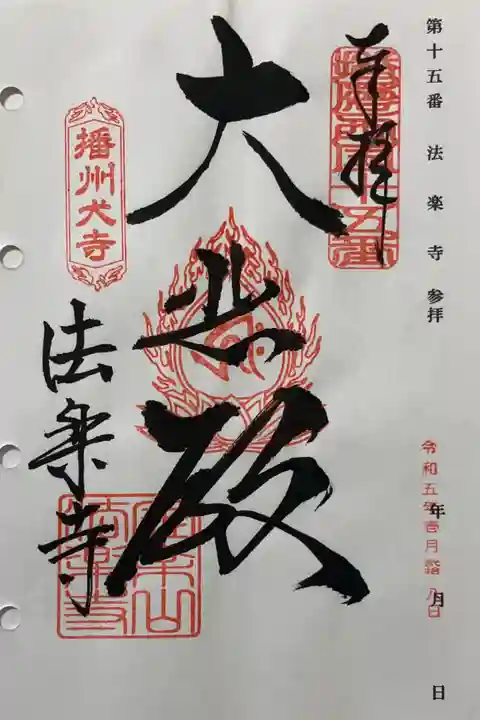 第十五番 法楽寺 参拝
年 月 日
令和五年壱月拾八日
奉拝
大悲殿
播州犬寺
法楽寺